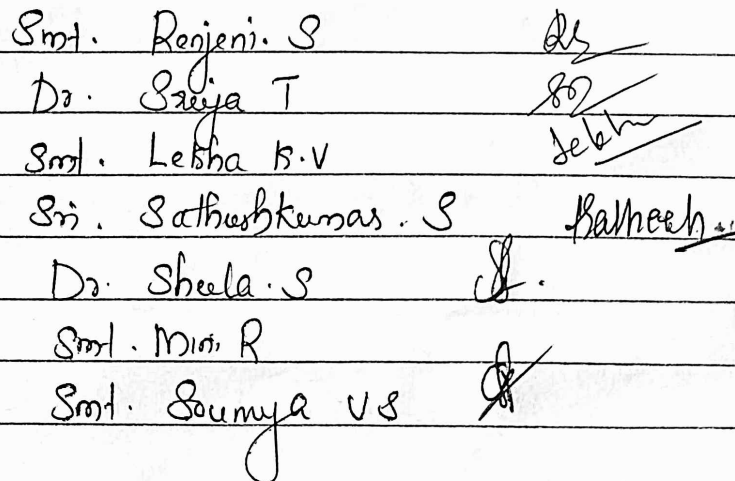 Smt. Renjeni. S
Dr. Sreeja T
Smt. Lekha K.V Lekha
Sri. Satheeshkumar. S Satheesh
Dr. Sheela. S
Smt. Mini R
Smt. Soumya VS